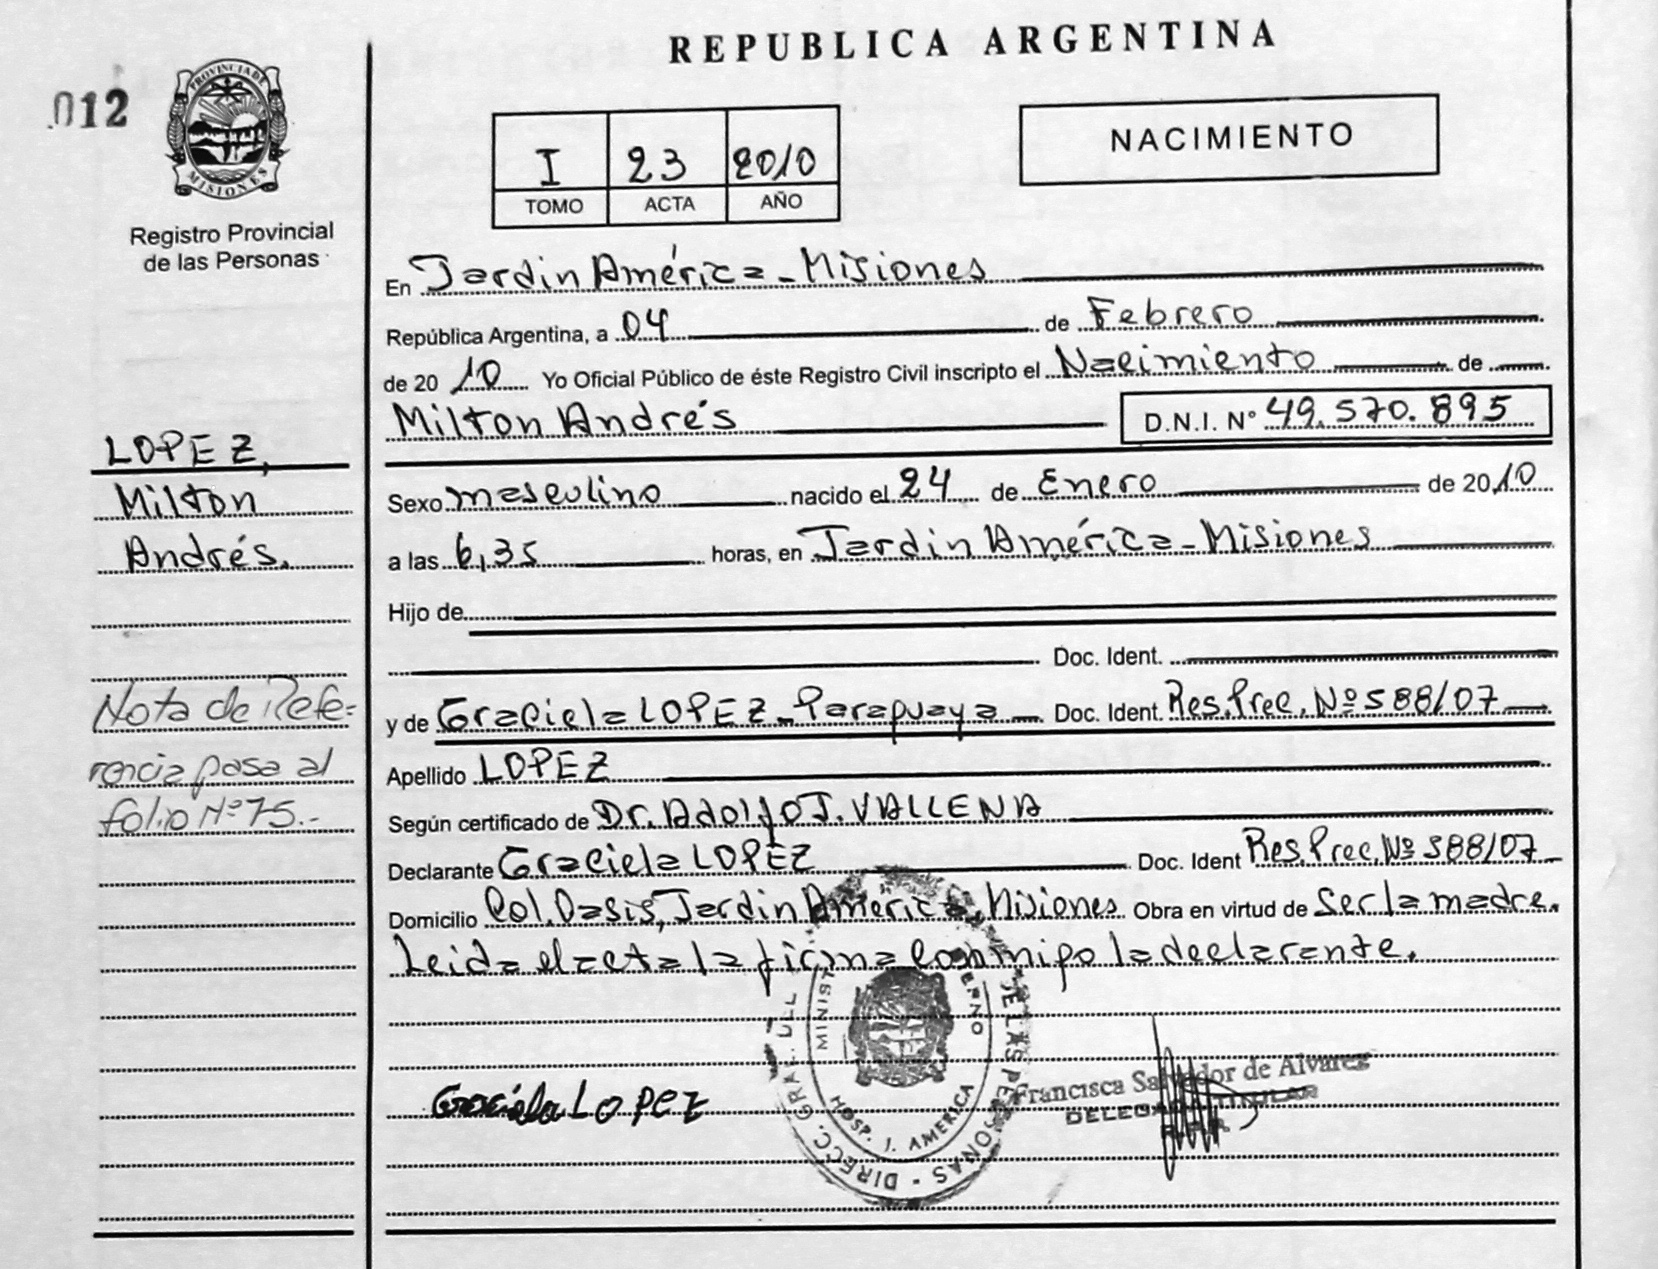 REPUBLICA ARGENTINA
012
PROVINCIA DE MISIONES
Registro Provincial
de las Personas
I 23 2010
TOMO ACTA AÑO
NACIMIENTO
En Jardin América - Misiones
República Argentina, a 04 de Febrero
de 20 10 Yo Oficial Público de éste Registro Civil inscripto el Nacimiento de
Milton Andrés D.N.I. Nº 49.570.895
LOPEZ,
Milton
Andrés.
Sexo masculino nacido el 24 de Enero de 20 10
a las 6,35 horas, en Jardin América - Misiones
Hijo de
Doc. Ident.
y de Graciela LOPEZ - Paraguaya Doc. Ident. Res. Prec. Nº 588/07
Apellido LOPEZ
Según certificado de Dr. Adolfo J. VALLENA
Declarante Graciela LOPEZ Doc. Ident Res. Prec. Nº 588/07
Domicilio Col. Oasis, Jardin América, Misiones Obra en virtud de Ser la madre.
Leida el acta la firma conmigo la declarante.
Nota de Refe-
rencia pasa al
folio Nº 75.-
Graciela LOPEZ
DIRECC. GRAL. DE LAS PERSONAS
HOSP. J. AMERICA
Francisca Salvador de Alvarez
DELEGADA TITULAR
R.P.P.